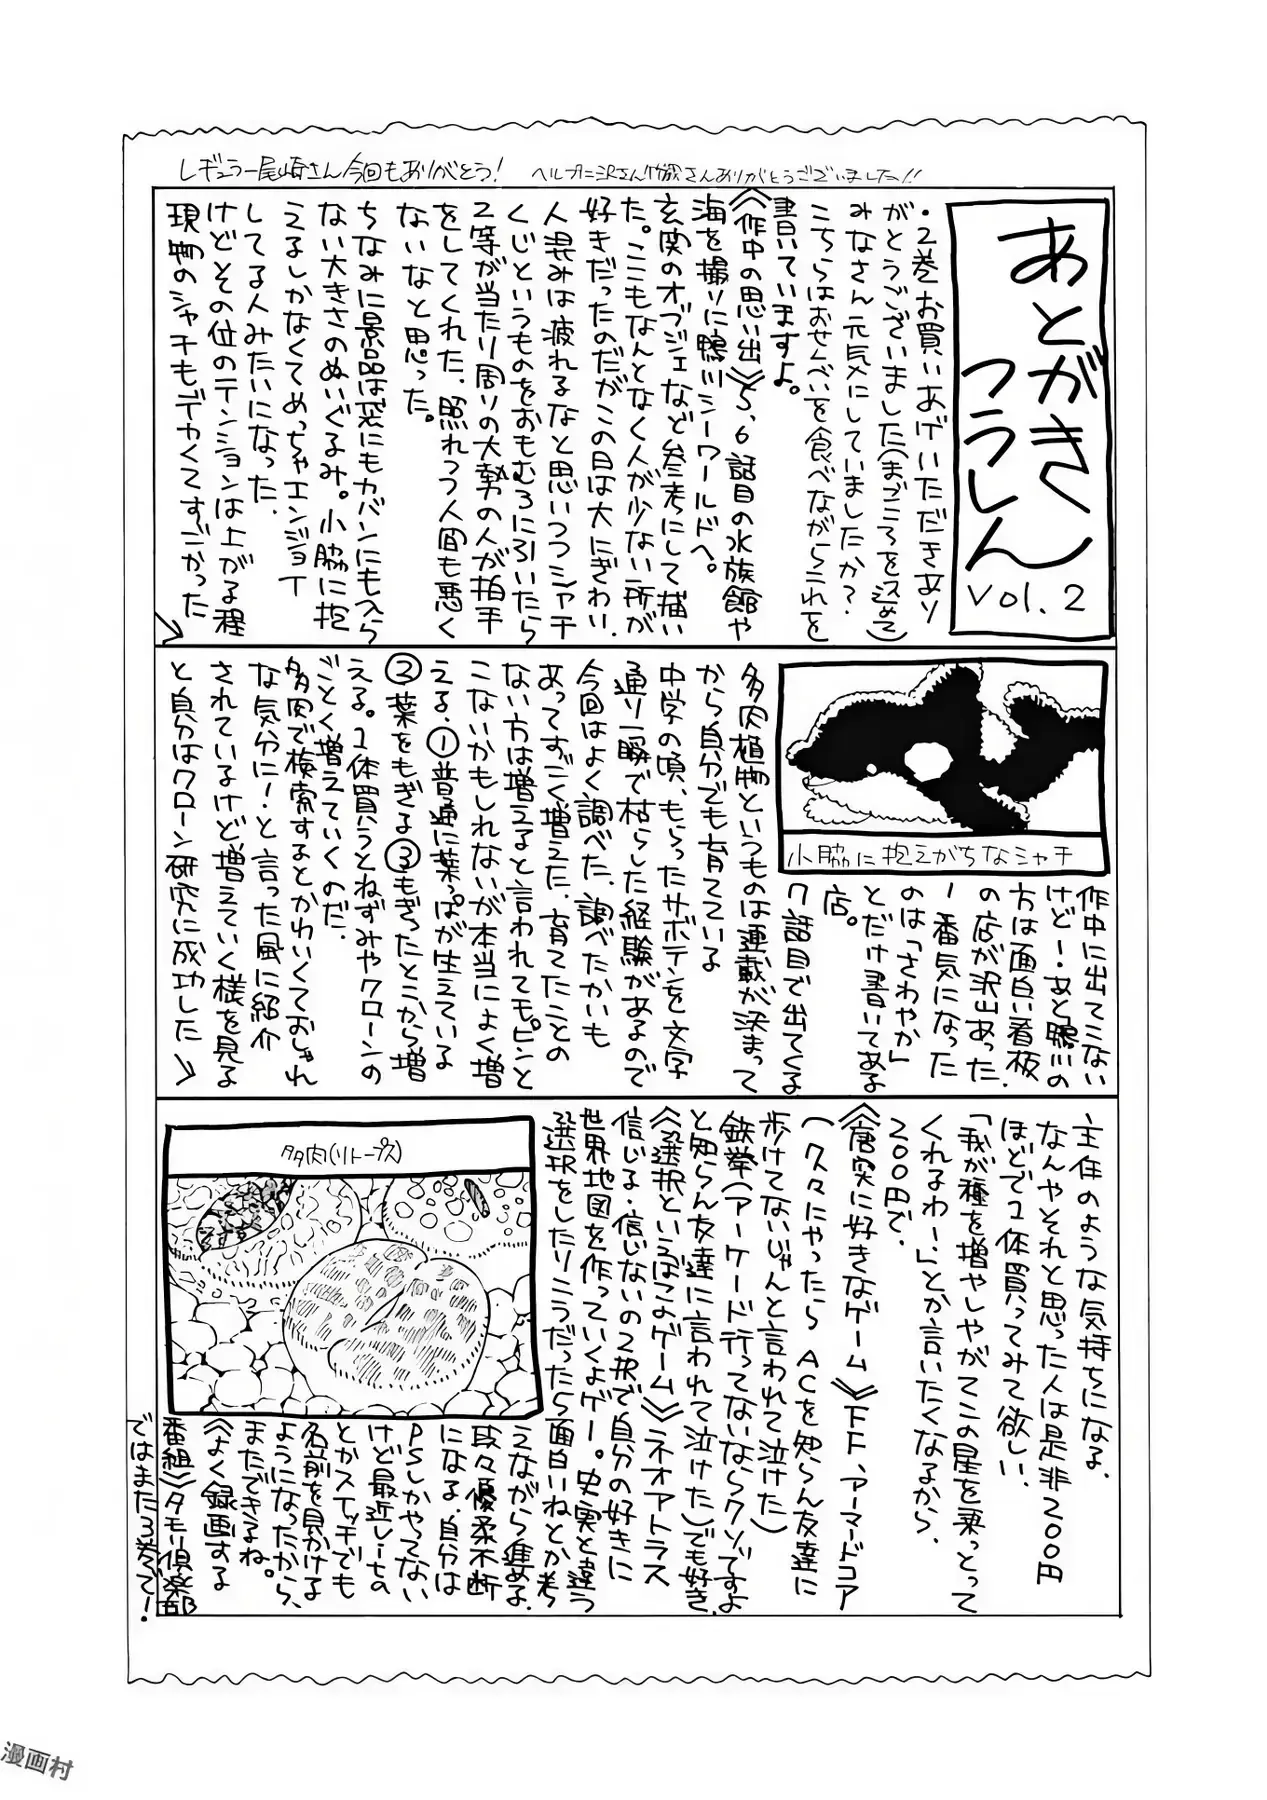 レギュラー尾崎さん今回もありがとう!
ヘルプニ沢さん!! さんありがとうございました!!
あとがき
つうしん
vol.2
・2巻お買いあげいただきあり
がとうございました(まごころを込めて)
みなさん元気にしていましたか?
こちらはおせんべいを食べながらこれを
書いていますよ。
《作中の思い出》5、6話目の水族館や
海を撮りに鴨川シーワールドへ。
玄関のオブジェなど参考にして描い
た。ここもなんとなく人が少ない所が
好きだったのだがこの日は大にぎわい。
人混みは疲れるなと思いつつシャチ
くじというものをおもむろに引いたら
2等が当たり周りの大勢の人が拍手
をしてくれた。照れつつ人間も悪く
ないなと思った。
ちなみに景品は袋にもカバンにも入ら
ない大きさのぬいぐるみ。小脇に抱
えるしかなくてめっちゃエンジョイ
してる人みたいになった。
けどその位のテンションは上がる程
現物のシャチもデカくてすごかった
小脇に抱えがちなシャチ
作中に出てこない
けどー・あと鴨川の
方は面白い看板
の店が沢山あった。
一番気になった
のは「さわやか」
とだけ書いてある
店。
7話目で出てくる
多肉植物というものは連載が決まって
から自分でも育てている
中学の頃、もらったサボテンを文字
通り一瞬で枯らした経験があるので
今回はよく調べた。調べたかいも
あってすごく増えた。育てたことの
ない方は増えると言われてもピンと
こないかもしれないが本当によく増
える。①普通に葉っぱが生えている
②葉をもぎる③もぎったとこから増
える。1体買うとねずみやクローンの
ごとく増えていくのだ。
多肉で検索するとかわいくておしゃれ
な気分に!と言った風に紹介
されているけど増えていく様を見る
と自分はクローン研究に成功した
主任のような気持ちになる。
なんやそれと思った人は是非200円
ほどで1体買ってみて欲しい。
「我が種を増やしやがてこの星を乗っとって
くれるわー!」とか言いたくなるから。
200円で。
《唐突に好きなゲーム》FF、アーマードコア
(久々にやったらACを知らん友達に
歩けてないじゃんと言われて泣けた)
鉄拳(アーケード行ってないならクソですよ
と知らん友達に言われて泣けた)でも好き。
《選択といえばこよゲーム》ネオアトラス
信じる・信じないの2択で自分の好きに
世界地図を作っていくよゲー。史実と違う
選択をしたりこうだったら面白いねとか考
えながら進める。
段々優柔不断
になる。自分は
PSしかやってない
けど最近Liteの
とかスイッチでも
名前を見かける
ようになったから、
またできるね。
《よく録画する
番組》タモリ倶楽部
ではまた3巻で!
多肉(リトープス)
漫画村